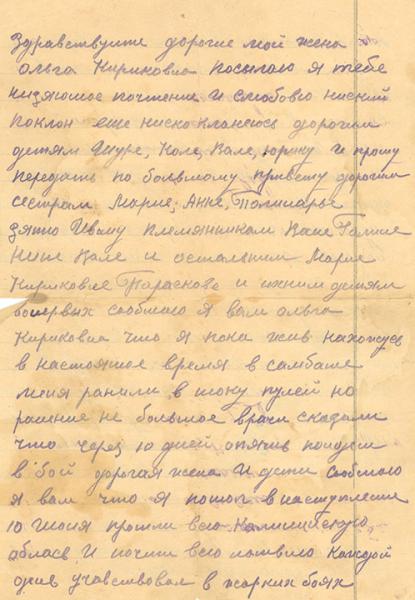 Здравствуите дорогие мой жена
ольга Кириковна посылаю я тебе
низяюшое почтение И с любовю ниский
поклон еще ниско кланеюсь дорогим
детям Шуре, Коле, Вале, юрику и прошу
передать по большому привету дорогим
сестрам Марие, Анне, Полинарье
зятю Ивану племянникам Ване Галине
Нине Вале и остальным Марие
Кириковне Параскове и ихним детям
воперьвых сообщаю я вам ольга
Кириковна что я пока жив нахожусь
в настоящое время в санбате
меня ранили в щоку пулей но
ранение не большое врачи сказали
что через 10 дней опять пойдем
в бой дорогая жена И дети сообщаю
я вам что я пошол в наступление
10 июля прошли всю Калининскую
абласть И почти всю латвию каждой
день учавствовал в жарких боях